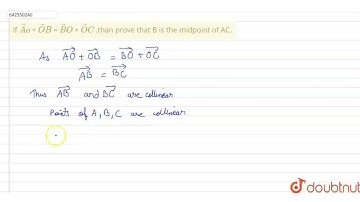 642550240
If A⃗o + O⃗B = B⃗O + O⃗C ,than prove that B is the midpoint of AC.
As A⃗O + O⃗B = B⃗O + O⃗C
A⃗B = B⃗C
Thus A⃗B and B⃗C are collinear
Points of A, B, C are collinear
doubtnut